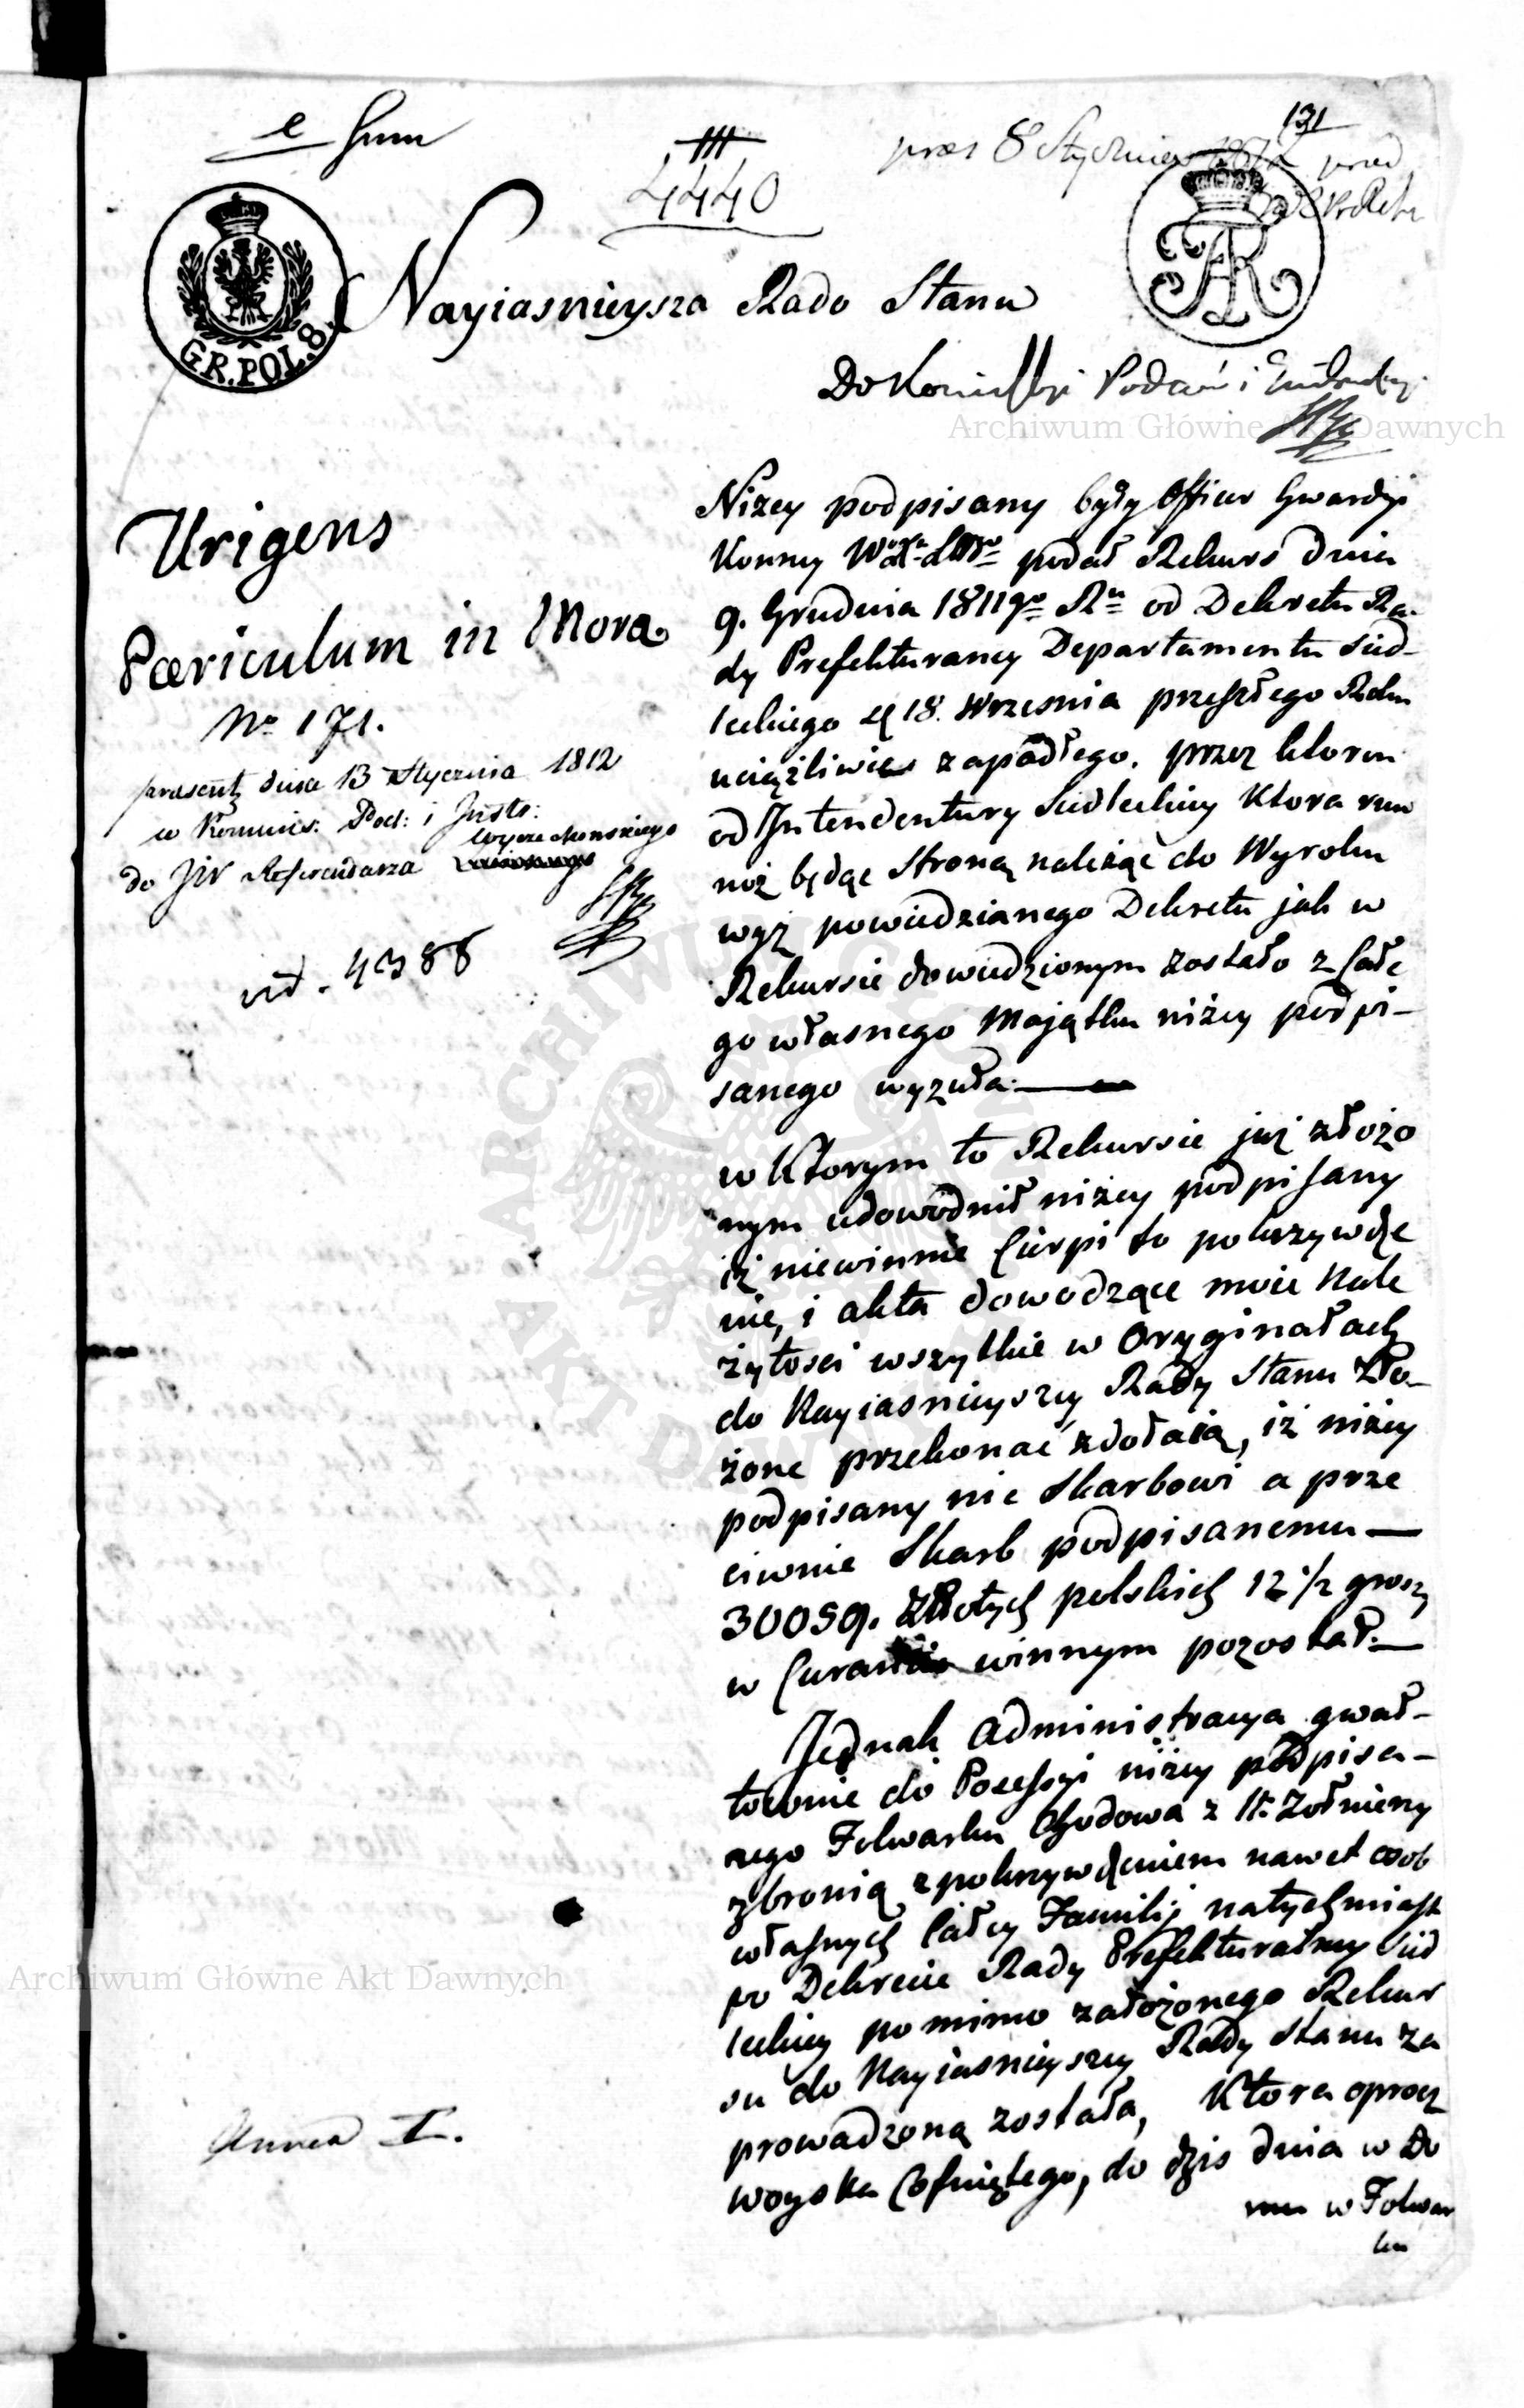 131
4440
Nayiasnieysza Rado Stanu
G.R.POL.8.
Do Kommissyi Podań i
Archiwum Główne Akt Dawnych
Urigens
Pæriculum in Mora
No 171.
præsent: dnia 13 Stycznia 1812
w Kommis: Pod: i Instr:
do JW Referendarza Wyczechowskiego
vid. 4388
Niżey podpisany były Officer Gwardyi
Konney podał Rekurs dnia
9. Grudnia 1811go Ru od Dekretu Ra-
dy Prefekturaney Departamentu Sied-
leckiego d 18. Wrzesnia przeszłego Roku
uciążliwie zapadłego. przez ktoren
od Intendentury Siedleckiey Ktora row
noż będąc Stroną należąc do Wyroku
wyż powiedzianego Dekretu jak w
Rekursie dowiedzionym zostało z Całe
go własnego Majątku niżey podpi-
sanego wyzuła.
w Ktorym to Rekursie już złożo
nym udowodnił niżey podpisany
iż niewinnie Cierpi to pokrzywdze
nie, i akta dowodzące moie Nale
żytosci wszytkie w Oryginałach
do Nayiasnieyszey Rady Stanu Zło-
żone przekonać zdołaią, iż niżey
podpisany nie Skarbowi a prze
ciwnie Skarb podpisanemu
30059. Złłotych polskich 12 1/2 groszy
w winnym pozostał.
Jednak Administracya gwał-
townie do Posessyi niżey podpisa-
nego Folwarku Chodowa z 11. Zołnierzy
zbronią zpokrzywdzeniem nawet osob
własnych Całey Familij natychmiast
po Dekrecie Rady Prefekturalney Sied
leckiey pomimo założonego Rekur
su do Nayiasnieyszey Rady Stanu za
prowadzoną została, Ktora oprocz
woyska Cofniętego, do dzis dnia w Do
mu w Folwar
ku
Archiwum Główne Akt Dawnych
Annexa I.
ARCHIWUM GŁÓWNE
AKT DAWNYCH